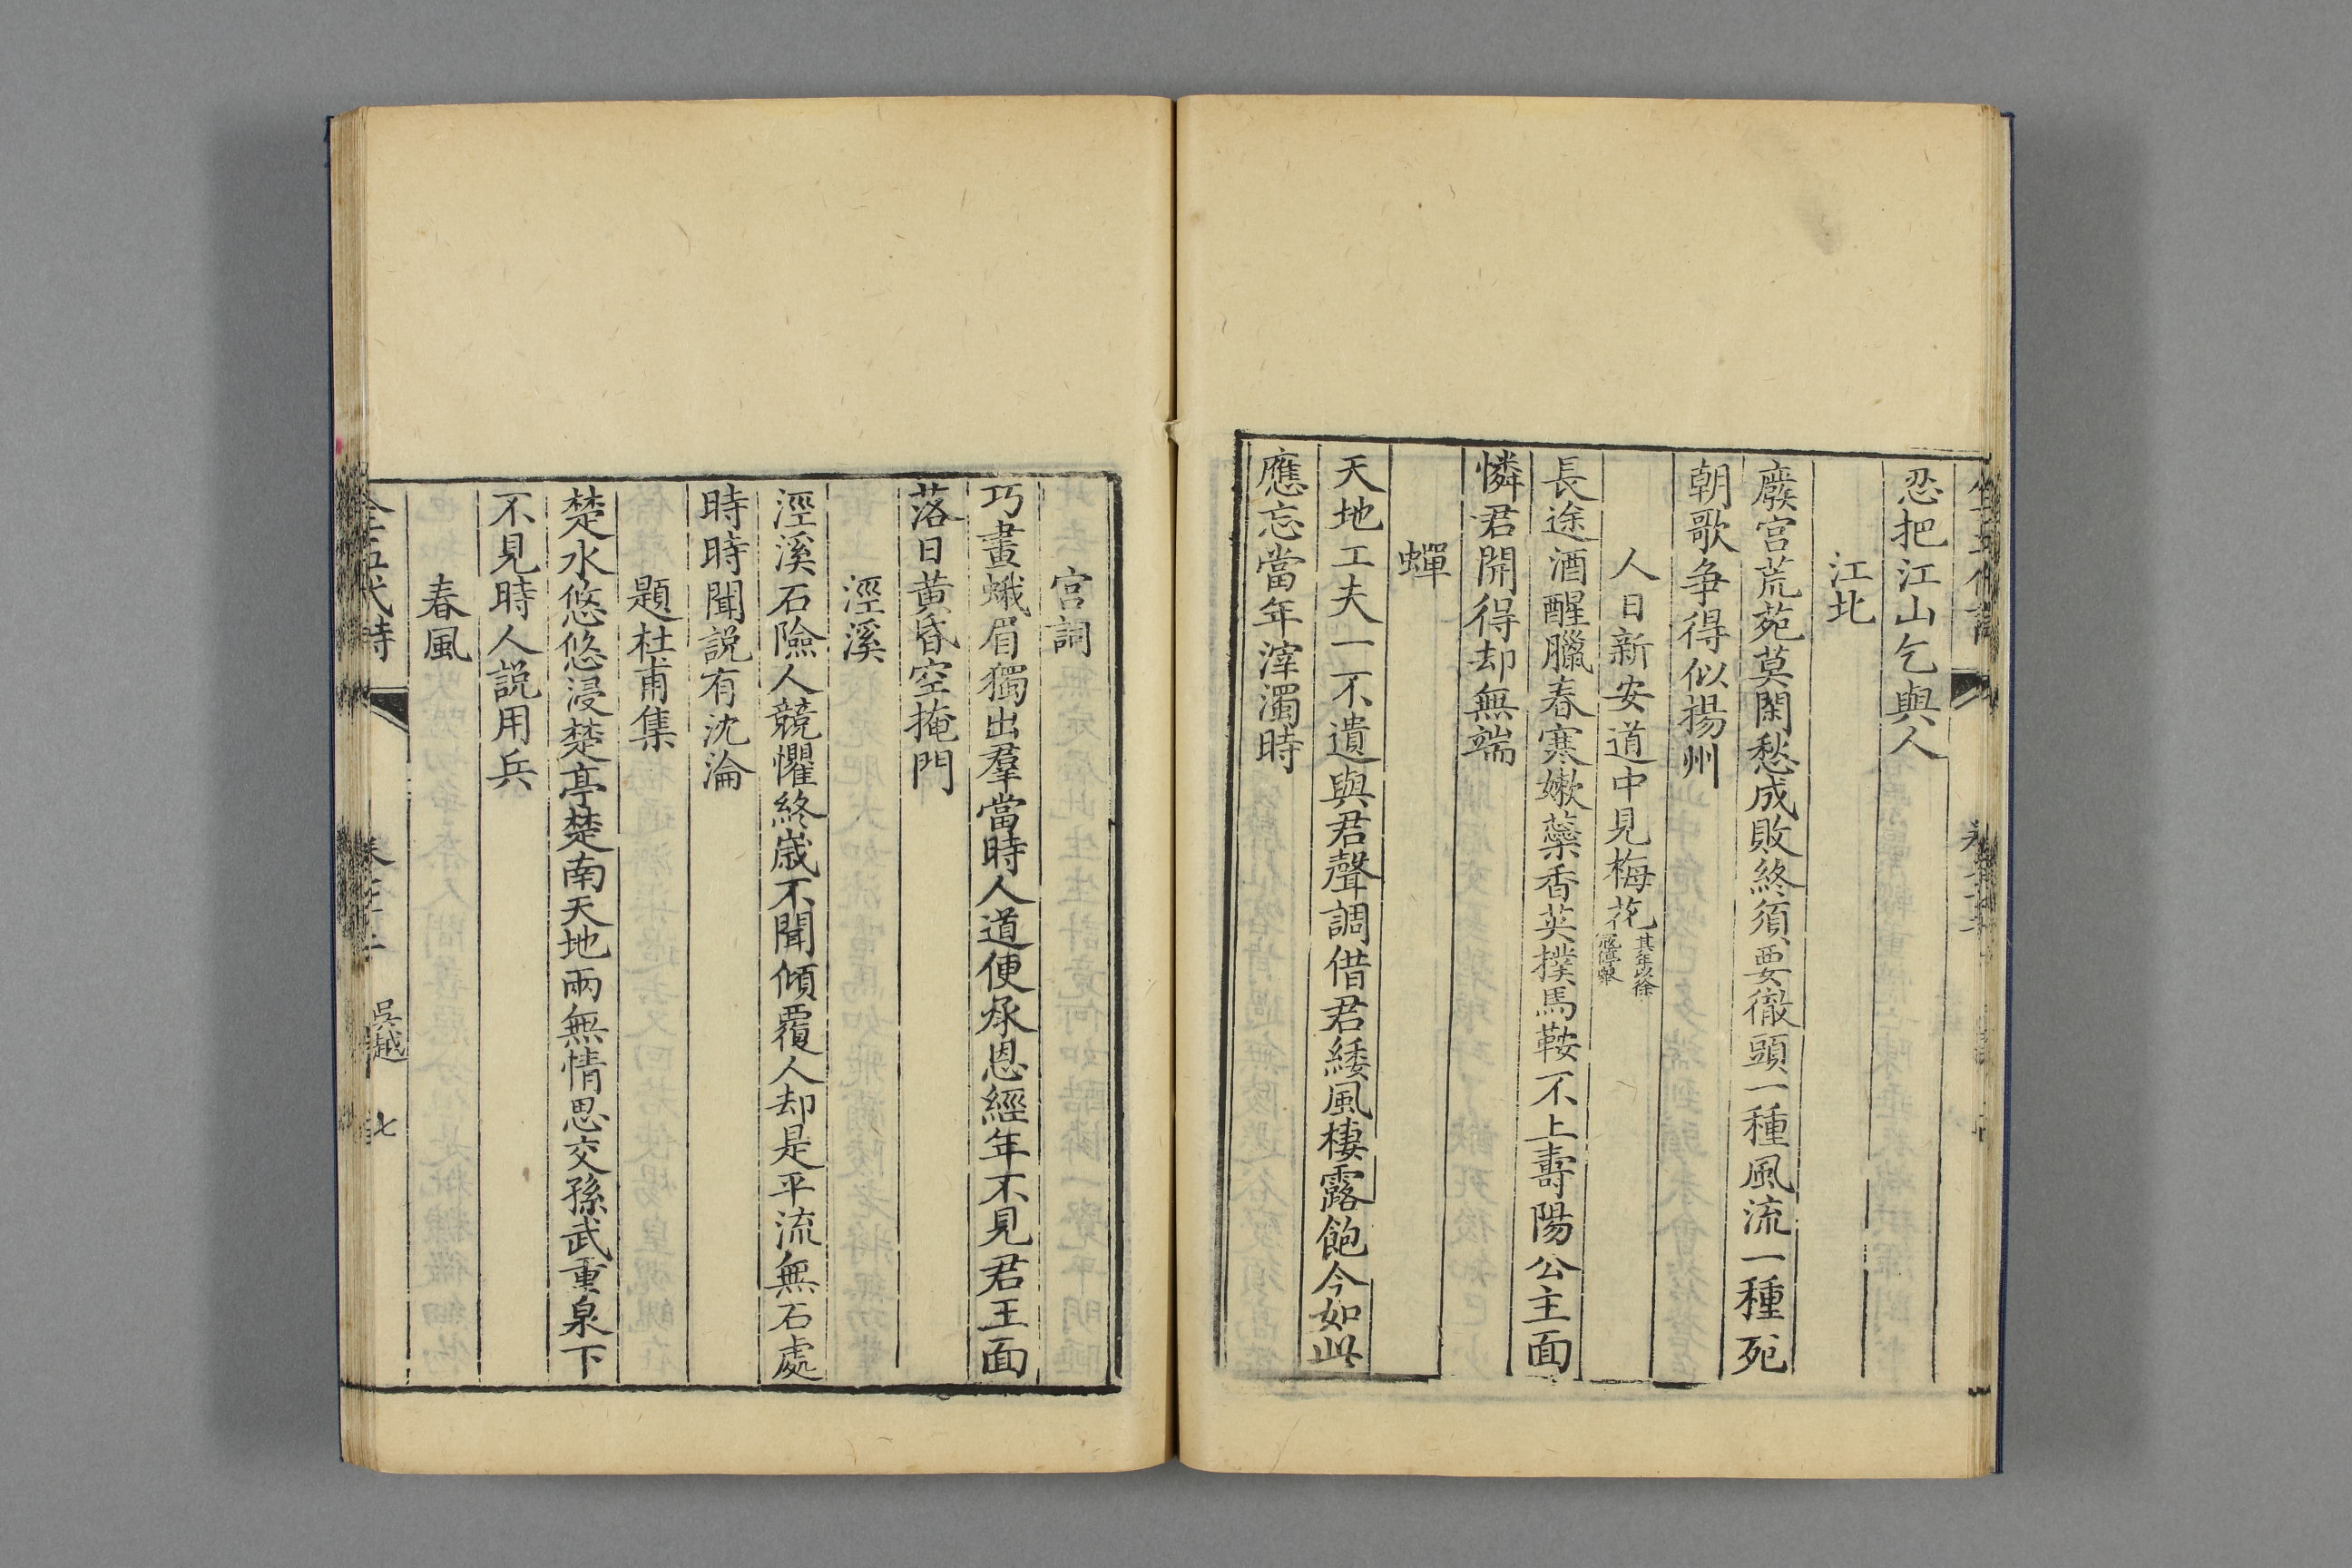 忍把江山乞與人
江北
廢宮荒苑莫閑愁成敗終須要徹頭一種風流一種死
朝歌爭得似揚州
人日新安道中見梅花
其年以徐
寇停舉
長途酒醒臘春寒嫩蘂香英撲馬鞍不上壽陽公主面
憐君開得却無端
蟬
天地工夫一不遺與君聲調借君緌風棲露飽今如此
應忘當年滓濁時
宮詞
巧畫蛾眉獨出羣當時人道便承恩經年不見君王面
落日黃昏空掩門
涇溪
涇溪石險人競懼終歲不聞傾覆人却是平流無石處
時時聞説有沈淪
題杜甫集
楚水悠悠浸楚亭楚南天地兩無情思交孫武重泉下
不見時人説用兵
春風
全五代詩
吳越
七